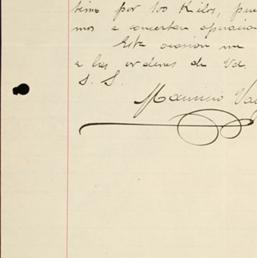 timo por 100 Kilos, pue
mos a concertar operacio
Esta ocasion me
a las ordenes de Vd.
S. S.